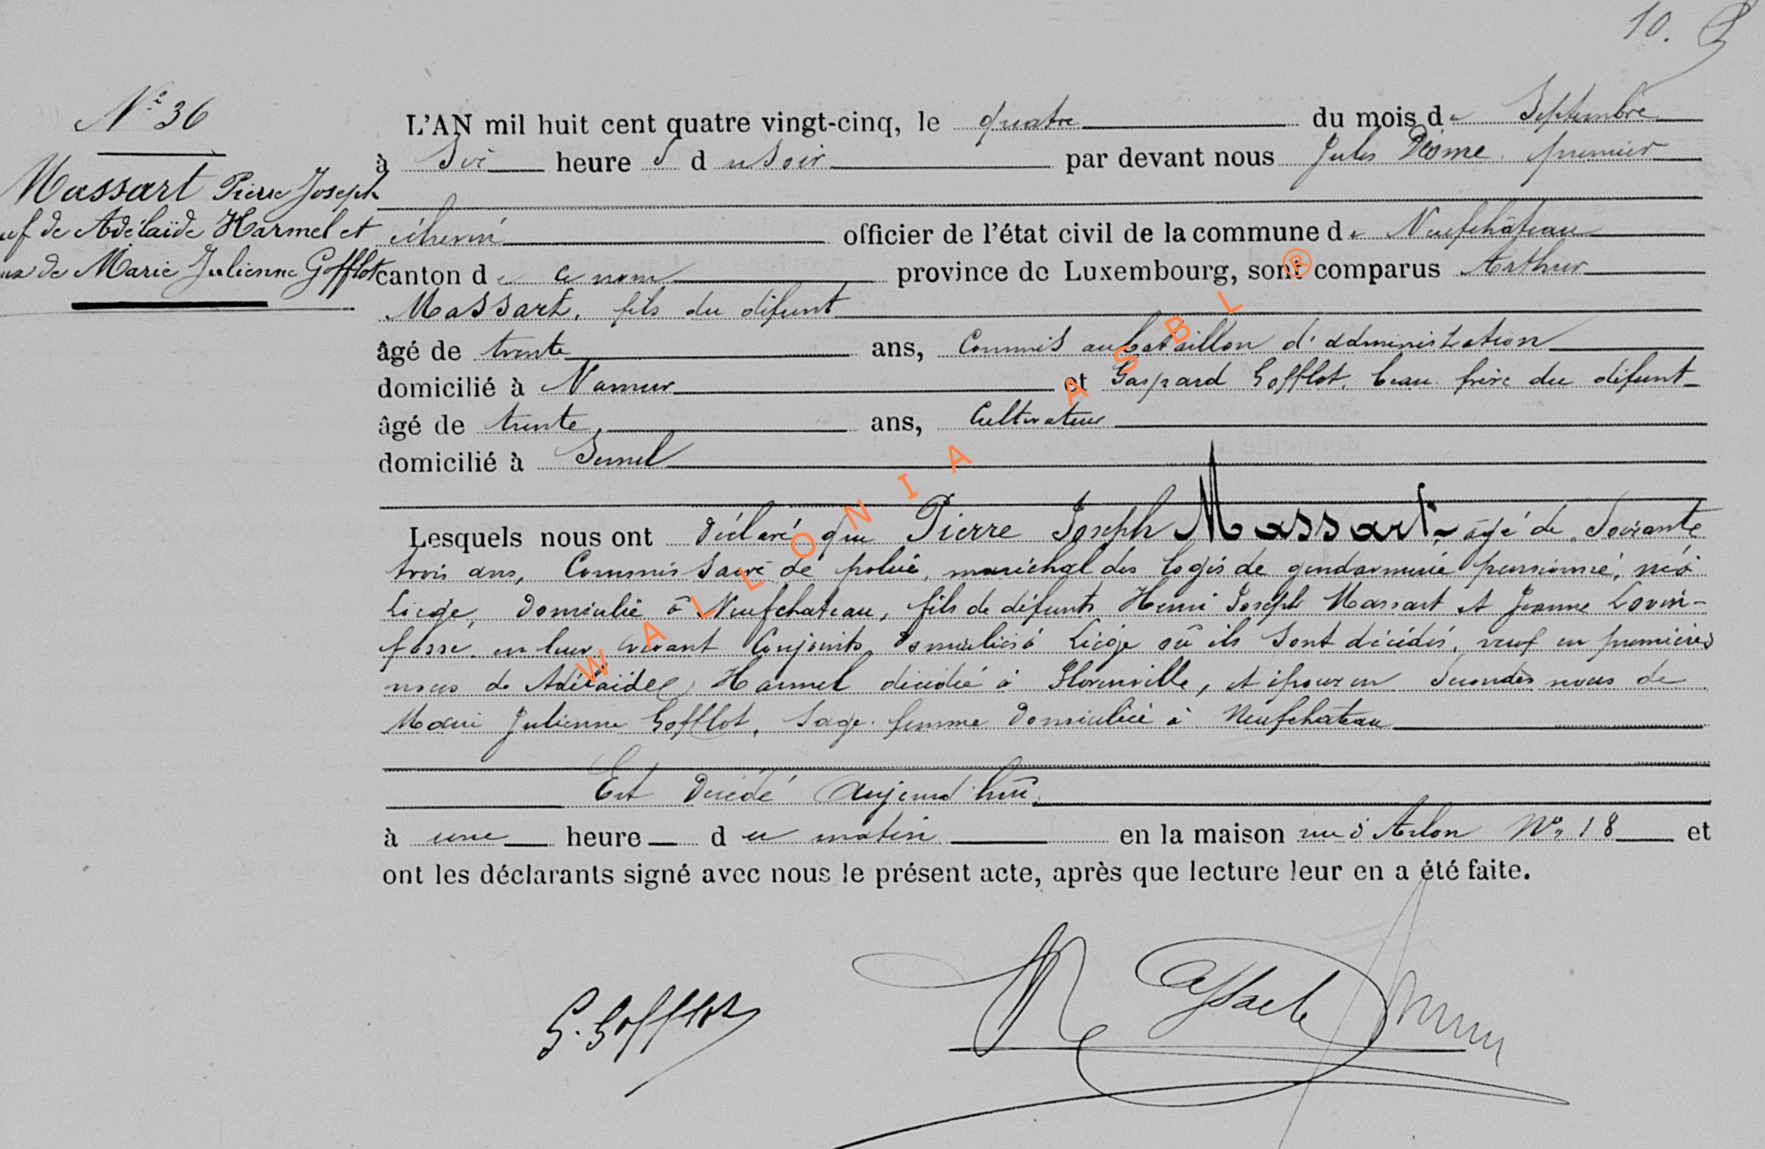 10.
Nº 36
Massart Pierre Joseph
uf de Adélaïde Harmel et
ux de Marie Julienne Gofflot
L'AN mil huit cent quatre vingt-cinq, le quatre du mois de Septembre
à Six heure s du Soir par devant nous Jules premier
échevin officier de l'état civil de la commune de Neufchâteau
canton de ce nom province de Luxembourg, sont comparus Arthur
Massart, fils du défunt
âgé de trente ans, Commis au bataillon d'administration
domicilié à Namur et Gaspard Gofflot, beau frère du défunt
âgé de trente ans, Cultivateur
domicilié à Semel
Lesquels nous ont déclaré que Pierre Joseph Massart, âgé de Soixante
trois ans, Commissaire de police, maréchal des logis de gendarmerie pensionné, né à
Liège, domicilié à Neufchateau, fils de défunts Henri Joseph Massart et Jeanne Lovin-
fosse, en leur vivant Conjoints, domiciliés à Liège où ils sont décédés, veuf en premières
noces de Adélaïde Harmel décédée à Florenville, et époux en secondes noces de
Marie Julienne Gofflot, Sage-femme domiciliée à Neufchateau
Est décédé aujourd'hui
à une heure du matin en la maison rue d'Arlon Nº 18 et
ont les déclarants signé avec nous le présent acte, après que lecture leur en a été faite.
G. Gofflot
Massart
WALLONIA ASBL ®